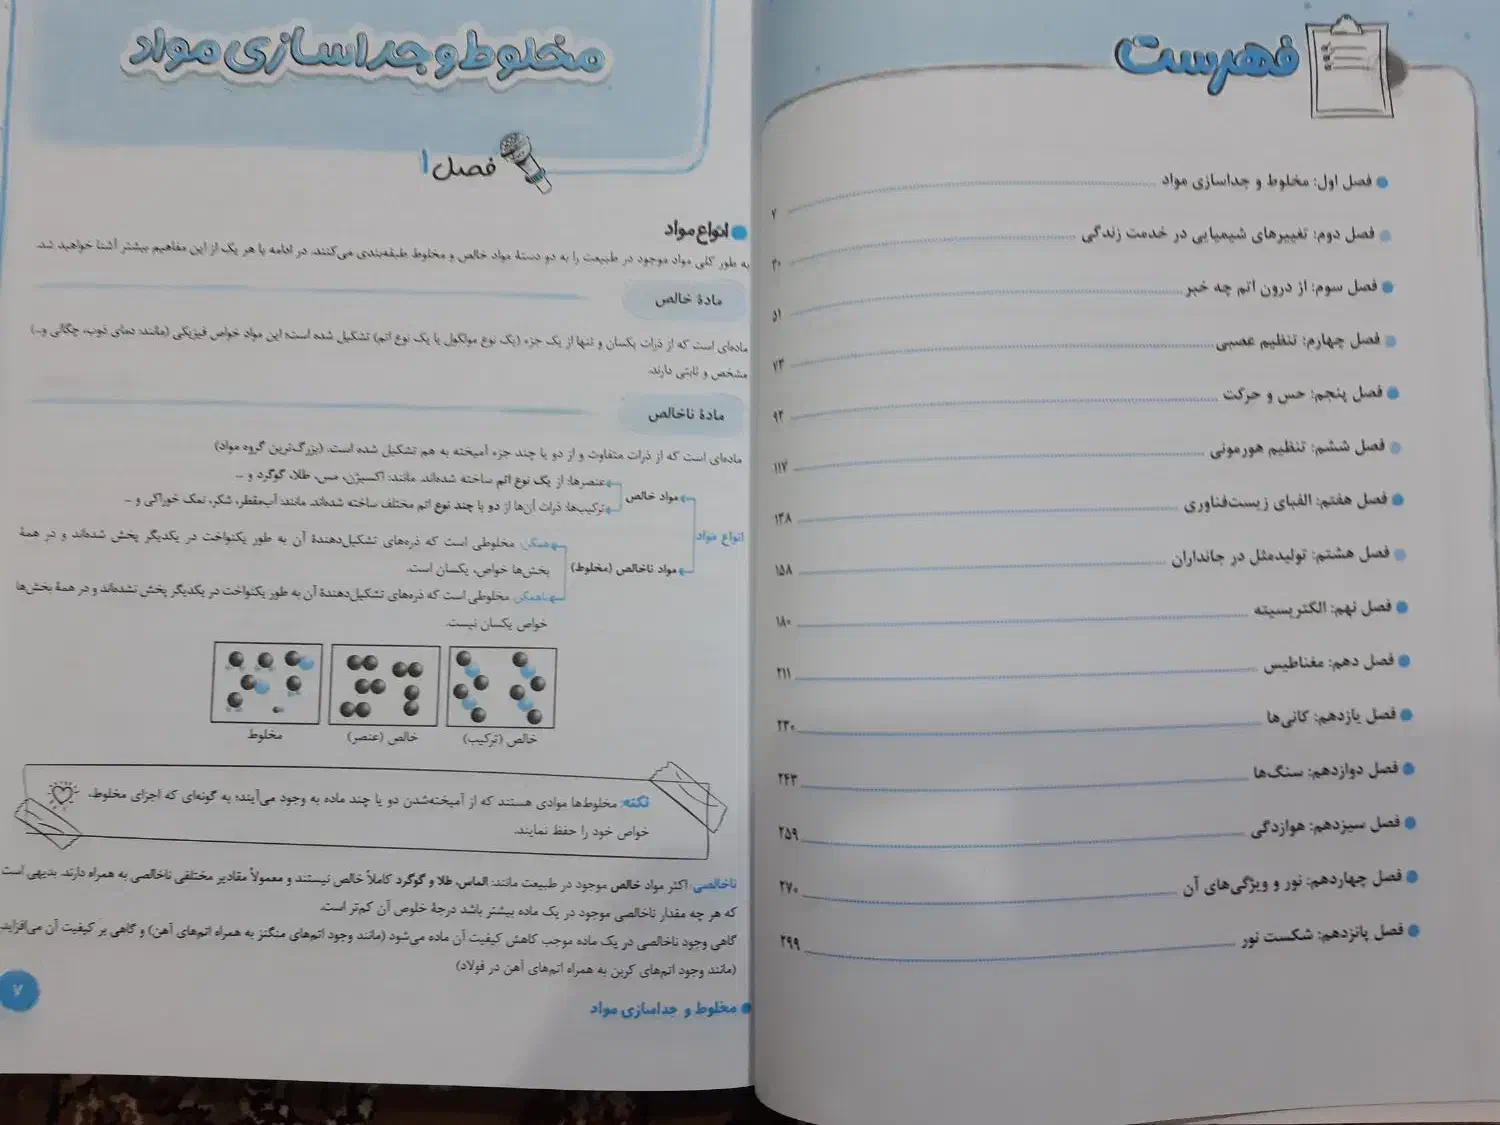 فهرست
فصل اول: مخلوط و جداسازی مواد ۷
فصل دوم: تغییرهای شیمیایی در خدمت زندگی ۳۰
فصل سوم: از درون اتم چه خبر ۵۱
فصل چهارم: تنظیم عصبی ۷۴
فصل پنجم: حس و حرکت ۹۴
فصل ششم: تنظیم هورمونی ۱۱۷
فصل هفتم: الفبای زیست‌فناوری ۱۳۸
فصل هشتم: تولیدمثل در جانداران ۱۵۸
فصل نهم: الکتریسیته ۱۸۰
فصل دهم: مغناطیس ۲۱۱
فصل یازدهم: کانی‌ها ۲۳۰
فصل دوازدهم: سنگ‌ها ۲۴۳
فصل سیزدهم: هوازدگی ۲۵۹
فصل چهاردهم: نور و ویژگی‌های آن ۲۷۰
فصل پانزدهم: شکست نور ۲۹۹
مخلوط و جداسازی مواد
فصل ۱
انواع مواد
به طور کلی مواد موجود در طبیعت را به دو دستهٔ مواد خالص و مخلوط طبقه‌بندی می‌کنند. در ادامه با هر یک از این مفاهیم بیشتر آشنا خواهید شد.
مادهٔ خالص
ماده‌ای است که از ذرات یکسان و تنها از یک جزء (یک نوع مولکول یا یک نوع اتم) تشکیل شده است؛ این مواد خواص فیزیکی (مانند: دمای ذوب، چگالی و...)
مشخص و ثابتی دارند.
مادهٔ ناخالص
ماده‌ای است که از ذرات متفاوت و از دو یا چند جزء آمیخته به هم تشکیل شده است. (بزرگ‌ترین گروه مواد)
انواع مواد
مواد خالص
عنصرها: از یک نوع اتم ساخته شده‌اند. مانند: اکسیژن، مس، طلا، گوگرد و ...
ترکیب‌ها: ذرات آن‌ها از دو یا چند نوع اتم مختلف ساخته شده‌اند. مانند: آب‌مقطر، شکر، نمک خوراکی و ...
مواد ناخالص (مخلوط)
همگن: مخلوطی است که ذره‌های تشکیل‌دهندهٔ آن به طور یکنواخت در یکدیگر پخش شده‌اند و در همهٔ
بخش‌ها خواص، یکسان است.
ناهمگن: مخلوطی است که ذره‌های تشکیل‌دهندهٔ آن به طور یکنواخت در یکدیگر پخش نشده‌اند و در همهٔ بخش‌ها
خواص یکسان نیست.
خالص (ترکیب) خالص (عنصر) مخلوط
نکته: مخلوط‌ها موادی هستند که از آمیخته‌شدن دو یا چند ماده به وجود می‌آیند؛ به گونه‌ای که اجزای مخلوط،
خواص خود را حفظ نمایند.
ناخالصی: اکثر مواد خالص موجود در طبیعت مانند: الماس، طلا و گوگرد کاملاً خالص نیستند و معمولاً مقادیر مختلفی ناخالصی به همراه دارند. بدیهی است
که هر چه مقدار ناخالصی موجود در یک ماده بیشتر باشد درجهٔ خلوص آن کم‌تر است.
گاهی وجود ناخالصی در یک ماده موجب کاهش کیفیت آن ماده می‌شود (مانند وجود اتم‌های منگنز به همراه اتم‌های آهن) و گاهی بر کیفیت آن می‌افزاید.
(مانند وجود اتم‌های کربن به همراه اتم‌های آهن در فولاد)
مخلوط و جداسازی مواد
۷